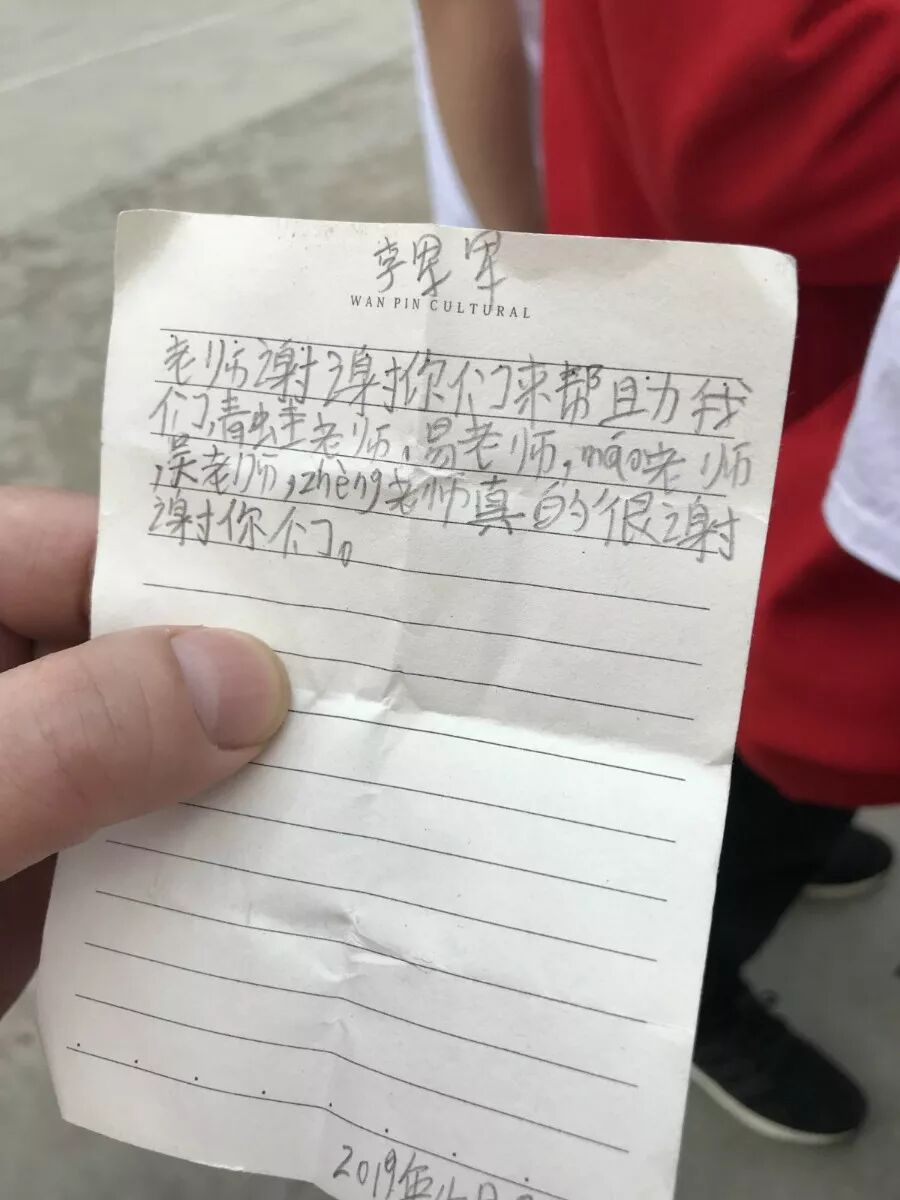 李
WAN PIN CULTURAL
老师谢谢你们来帮助我
们,青蛙老师,易老师,máo老师
,吴老师,zhèng老师真的很谢
谢你们。
2019年